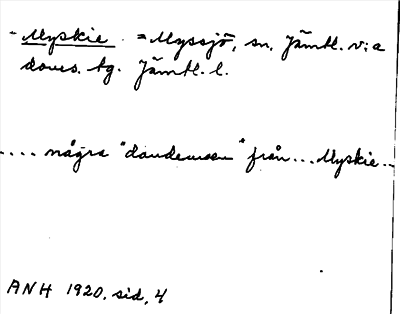 - Myskie. = Myssjö, sn. Jämtl. v:a
doms. tg. Jämtl. l.
.... några "dandemæn" från... Myskie...
ANH 1920, sid, 4